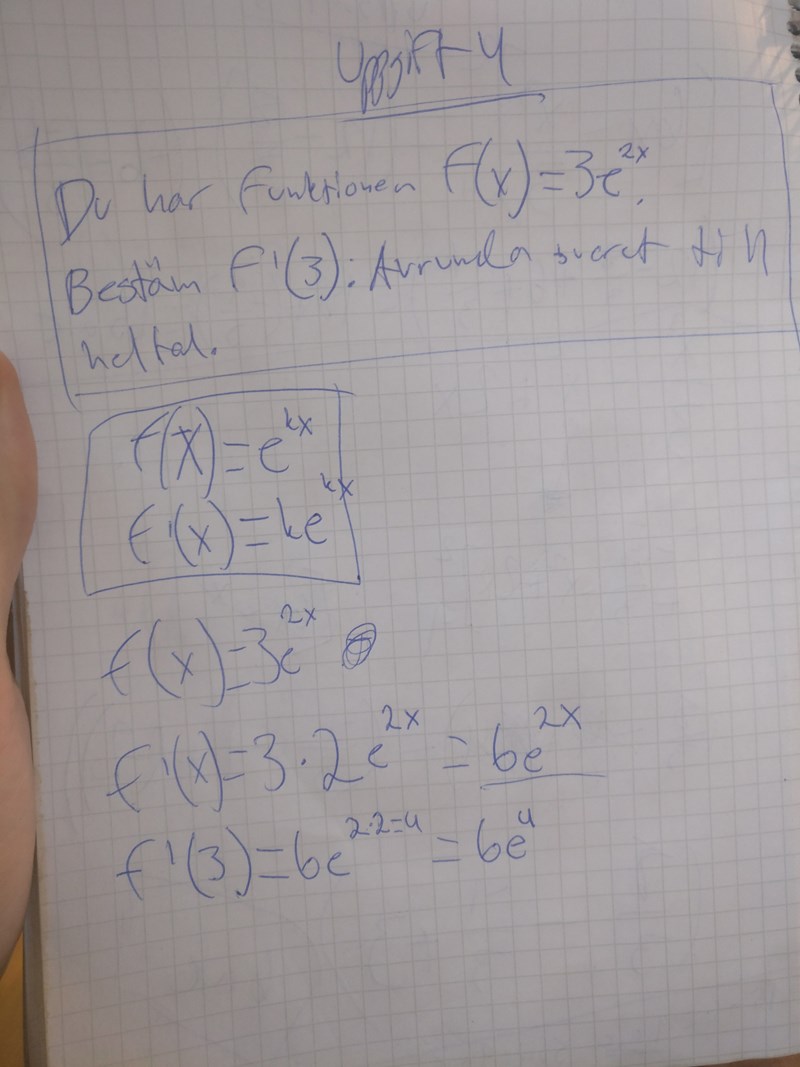 Uppgift 4
Du har funktionen f(x)=3e^2x.
Bestäm f'(3). Avrunda svaret till
heltal.
f(x)=e^kx
f'(x)=ke^kx
f(x)=3e^2x
f'(x)=3·2e^2x = 6e^2x
f'(3)=6e^2·2=4 = 6e^4